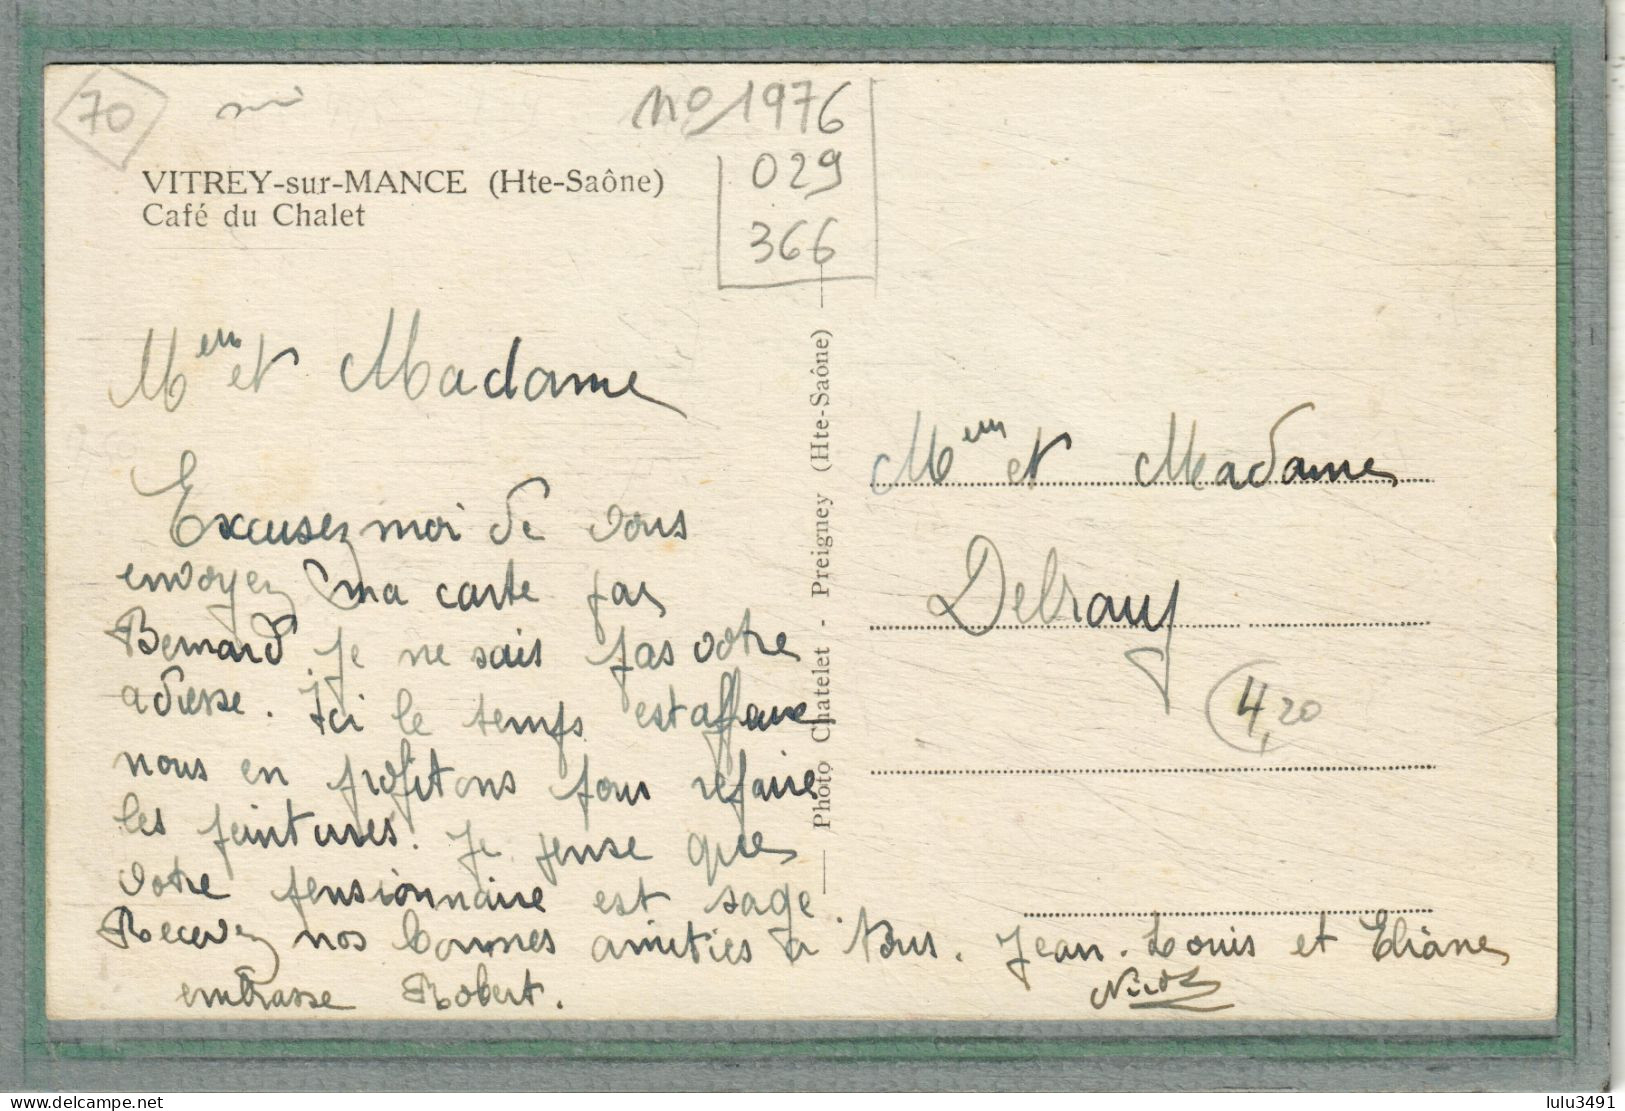 70
no 1976
029
366
VITREY-sur-MANCE (Hte-Saône)
Café du Chalet
Photo Chatelet - Preigney (Hte-Saône)
Mem et Madame
Excusez moi de vous
envoyez ma carte par
Bernard. Je ne sais pas votre
adresse. Ici le temps est affreux
nous en profitons pour refaire
les peintures. Je pense que
votre pensionnaire est sage.
Recevez nos bonnes amitiés à tous. Jean-Louis et Eliane
embrasse Robert.
Mem et Madame
Delray
4,20
www.delcampe.net
lulu3491